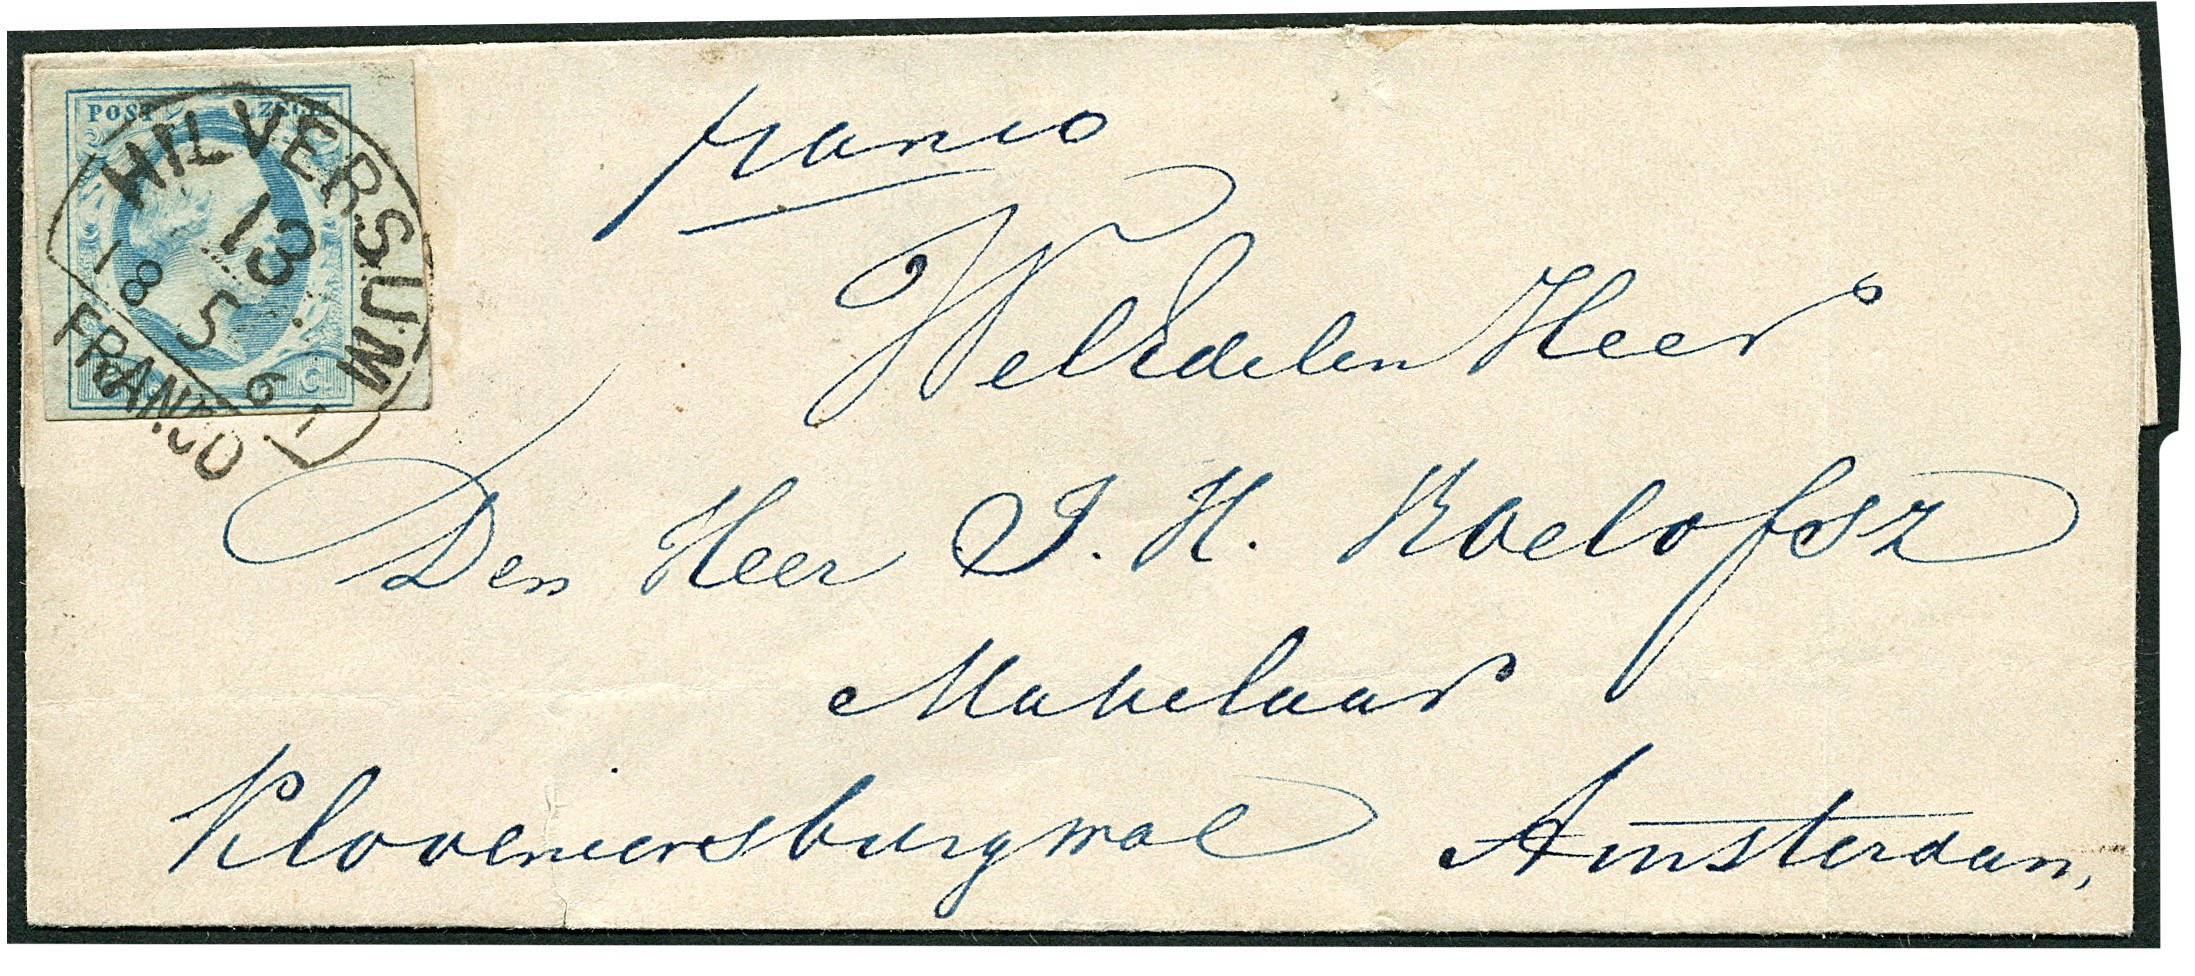 POST ZEGEL
HILVERSUM
13
5
18 61
FRANCO
franco
WelEdelen Heer
Den Heer J. H. Roelofsz
Makelaar
Kloveniersburgwal Amsterdam,